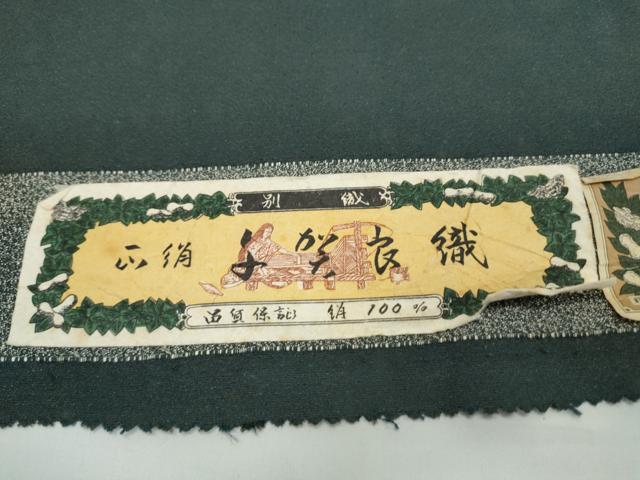 別織
正絹 賀良織
品質保証 絹 100%